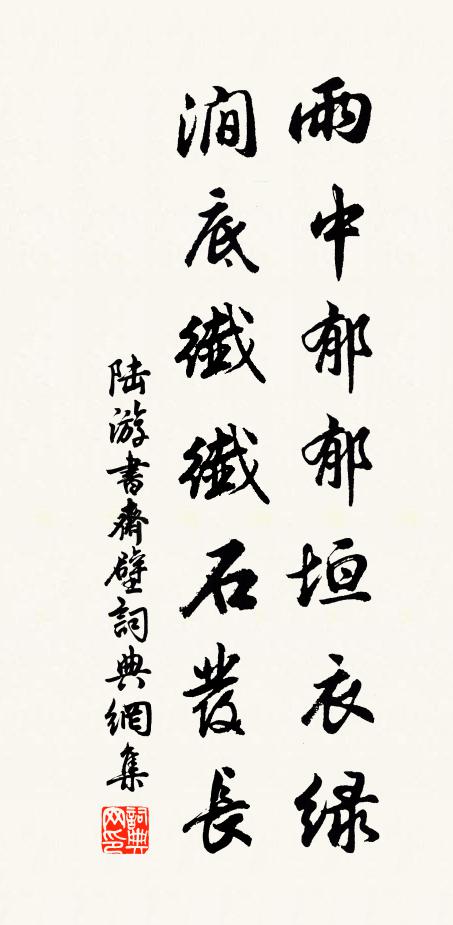 雨中郁郁垣衣绿
涧底纖纖石發長
陆游書齋壁詞典網集
詞典网印